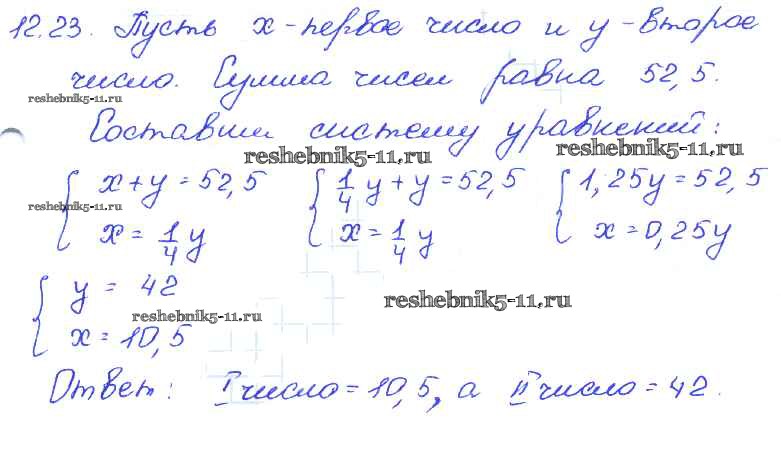 12.23. Пусть x - первое число и y - второе
число. Сумма чисел равна 52,5.
reshebnik5-11.ru
Составим систему уравнений:
reshebnik5-11.ru reshebnik5-11.ru
{ x + y = 52,5 { 1/4 y + y = 52,5 { 1,25y = 52,5
reshebnik5-11.ru
x = 1/4 y x = 1/4 y x = 0,25y
{ y = 42
reshebnik5-11.ru
reshebnik5-11.ru
x = 10,5
Ответ: I число = 10,5, а II число = 42.